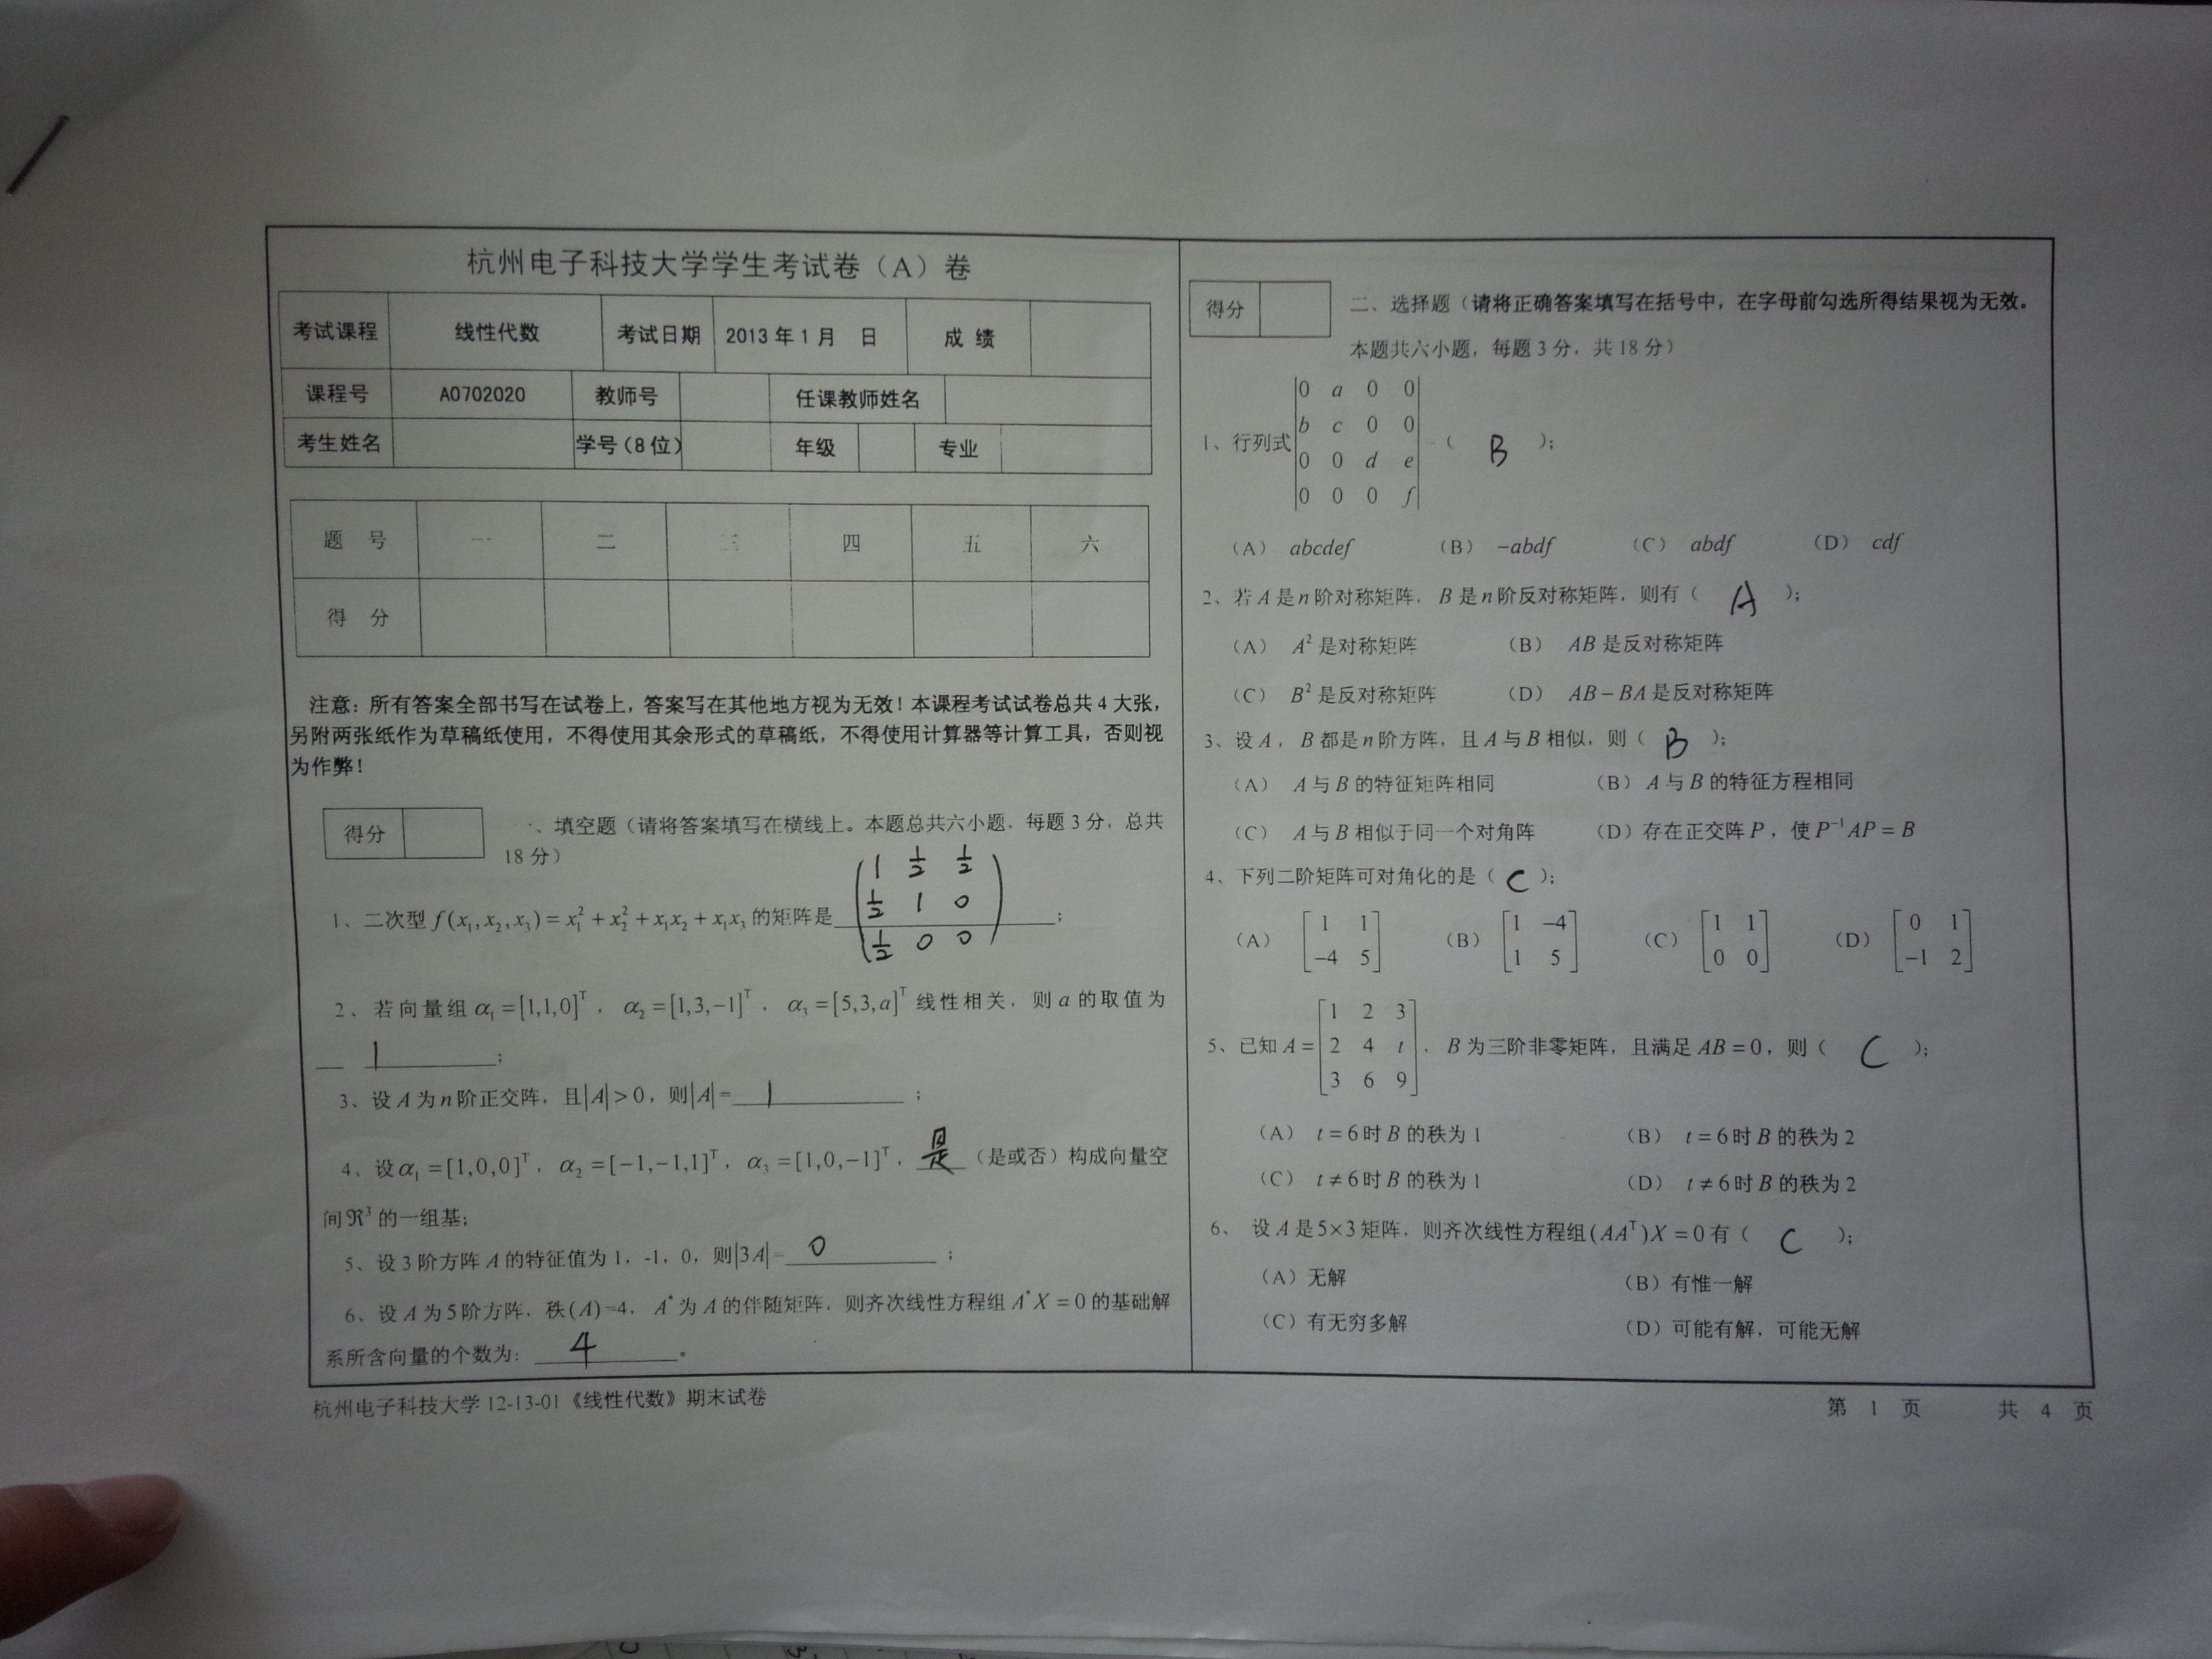 杭州电子科技大学学生考试卷（A）卷
考试课程 线性代数 考试日期 2013年1月 日 成绩
课程号 A0702020 教师号 任课教师姓名
考生姓名 学号（8位） 年级 专业
题 号 一 二 三 四 五 六
得 分
注意：所有答案全部书写在试卷上，答案写在其他地方视为无效！本课程考试试卷总共4大张，
另附两张纸作为草稿纸使用，不得使用其余形式的草稿纸，不得使用计算器等计算工具，否则视
为作弊！
得分
一、填空题（请将答案填写在横线上。本题总共六小题，每题3分，总共
18分）
1、二次型 f(x₁,x₂,x₃)=x₁²+x₂²+x₁x₂+x₁x₃ 的矩阵是 ；
1 1/2 1/2
1/2 1 0
1/2 0 0
2、若向量组 α₁=[1,1,0]ᵀ，α₂=[1,3,−1]ᵀ，α₃=[5,3,a]ᵀ 线性相关，则 a 的取值为
1 ；
3、设 A 为 n 阶正交阵，且|A|>0，则|A|= 1 ；
4、设 α₁=[1,0,0]ᵀ，α₂=[−1,−1,1]ᵀ，α₃=[1,0,−1]ᵀ，是（是或否）构成向量空
间ℜ³的一组基；
5、设3阶方阵 A 的特征值为1，-1，0，则|3A|= 0 ；
6、设 A 为5阶方阵，秩(A)=4，A* 为 A 的伴随矩阵，则齐次线性方程组 A*X=0 的基础解
系所含向量的个数为： 4 。
杭州电子科技大学12-13-01《线性代数》期末试卷
得分
二、选择题（请将正确答案填写在括号中，在字母前勾选所得结果视为无效。
本题共六小题，每题3分，共18分）
0 a 0 0
b c 0 0
1、行列式 =（ B ）；
0 0 d e
0 0 0 f
（A） abcdef （B） −abdf （C） abdf （D） cdf
2、若 A 是 n 阶对称矩阵，B 是 n 阶反对称矩阵，则有（ A ）；
（A） A² 是对称矩阵 （B） AB 是反对称矩阵
（C） B² 是反对称矩阵 （D） AB−BA 是反对称矩阵
3、设 A，B 都是 n 阶方阵，且 A 与 B 相似，则（ B ）；
（A） A 与 B 的特征矩阵相同 （B）A 与 B 的特征方程相同
（C） A 与 B 相似于同一个对角阵 （D）存在正交阵 P，使 P⁻¹AP=B
4、下列二阶矩阵可对角化的是（ C ）；
（A） （B） （C） （D）
1 1 1 −4 1 1 0 1
−4 5 1 5 0 0 −1 2
1 2 3
5、已知 A= 2 4 t ，B 为三阶非零矩阵，且满足 AB=0，则（ C ）；
3 6 9
（A） t=6时 B 的秩为1 （B） t=6时 B 的秩为2
（C） t≠6时 B 的秩为1 （D） t≠6时 B 的秩为2
6、 设 A 是5×3矩阵，则齐次线性方程组(AAᵀ)X=0有（ C ）；
（A）无解 （B）有惟一解
（C）有无穷多解 （D）可能有解，可能无解
第 1 页 共 4 页